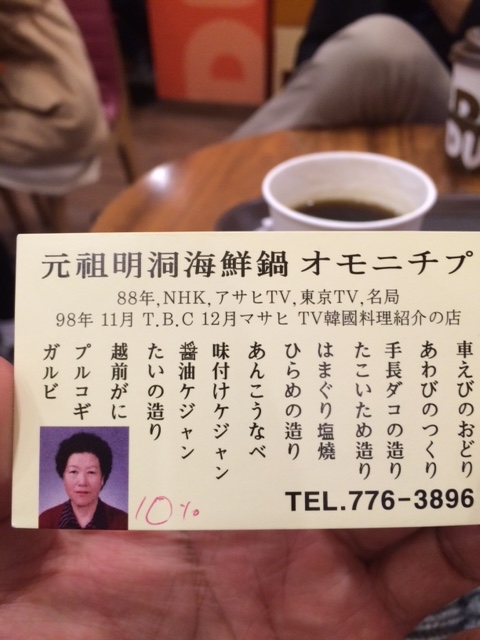 元祖明洞海鮮鍋 オモニチプ
88年,NHK,アサヒTV,東京TV,名局
98年 11月 T.B.C 12月マサヒ TV韓國料理紹介の店
車えびのおどり
あわびのつくり
手長ダコの造り
たこいため造り
はまぐり塩燒
ひらめの造り
あんこうなべ
味付けケジャン
醤油ケジャン
たいの造り
越前がに
プルコギ
ガルビ
10%
TEL.776-3896